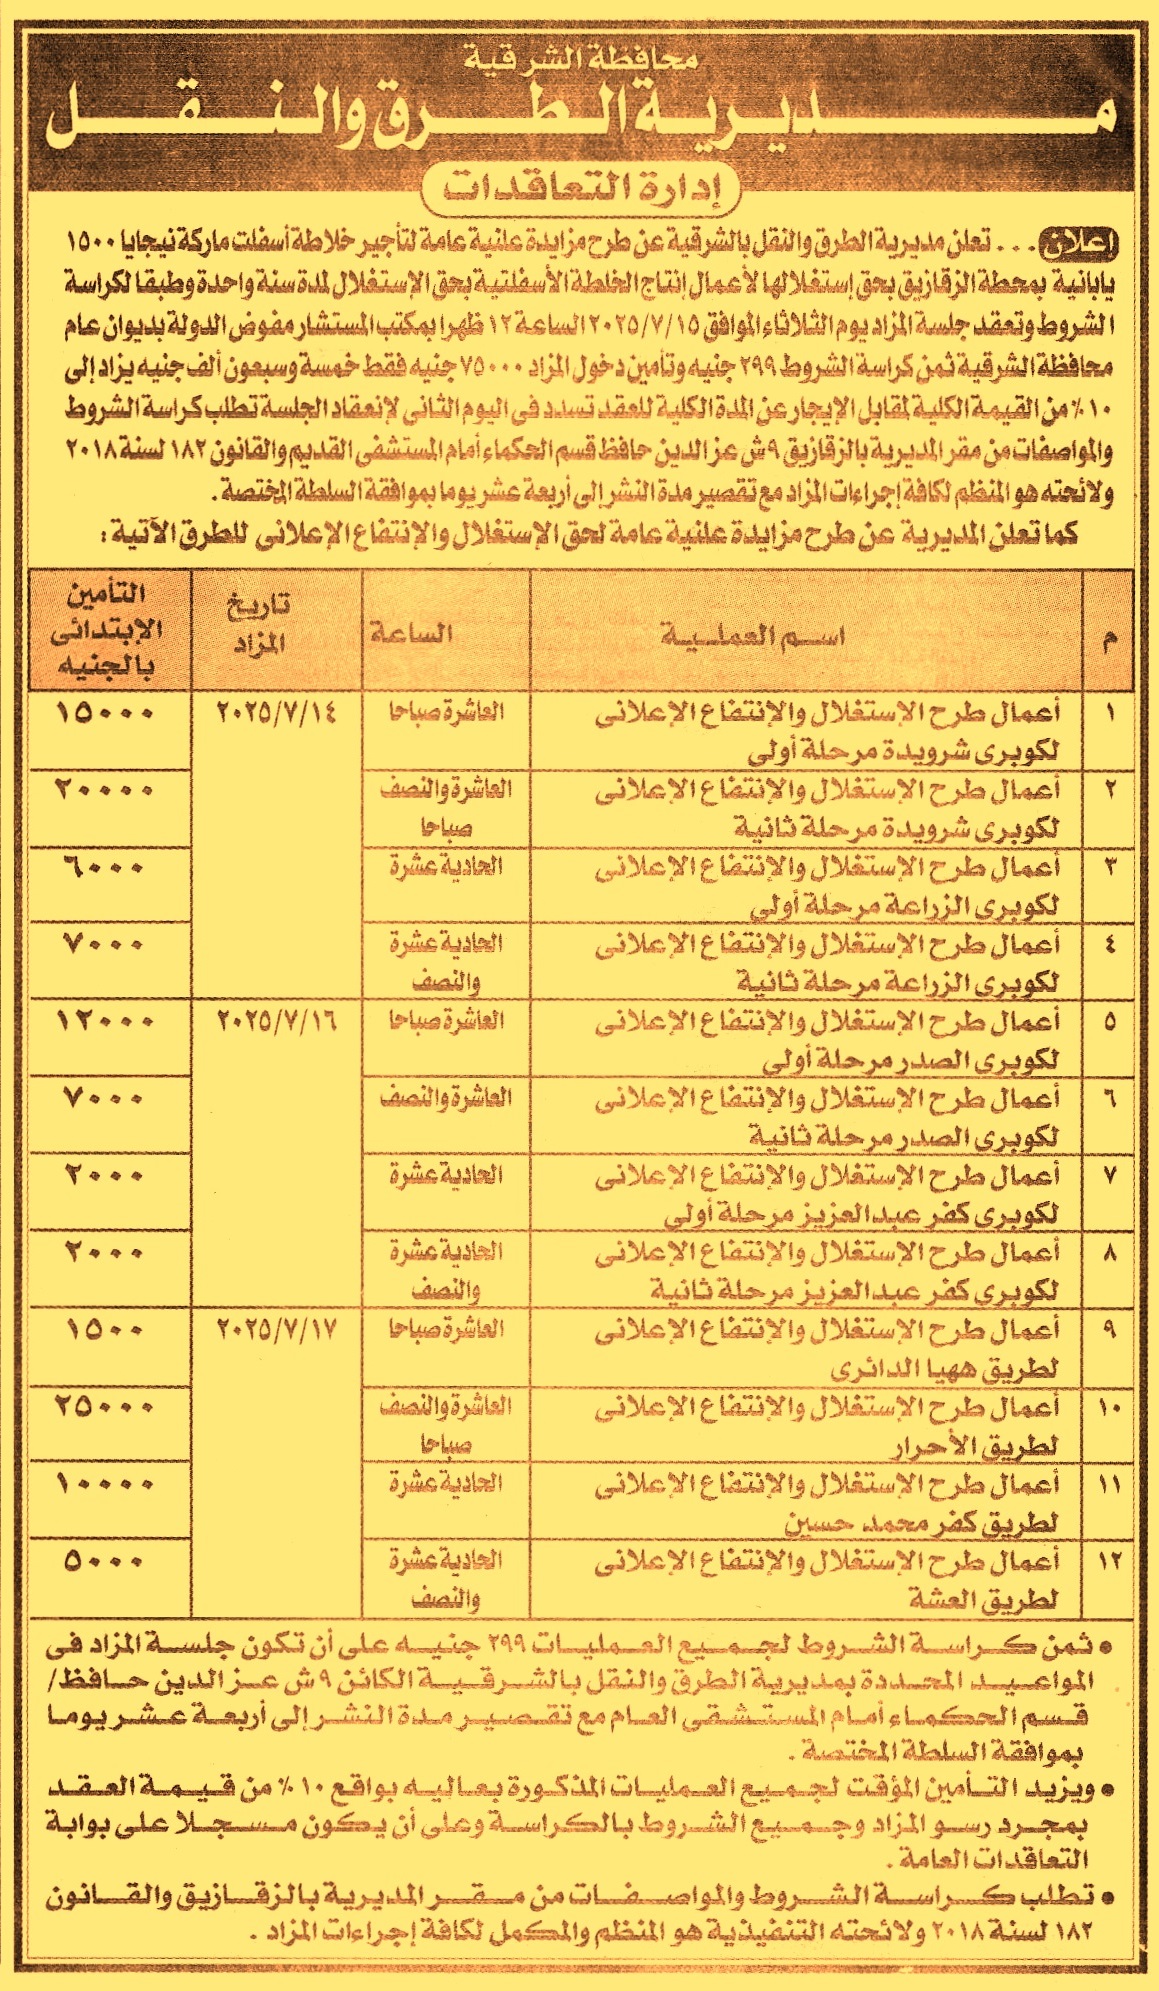 محافظة الشرقية
مديرية الطرق والنقل
إدارة التعاقدات
إعلان ... تعلن مديرية الطرق والنقل بالشرقية عن طرح مزايدة علنية عامة لتأجير خلاطة أسفلت ماركة نيجايا ١٥٠٠
يابانية بمحطة الزقازيق بحق إستغلالها لأعمال إنتاج الخلطة الأسفلتية بحق الإستغلال لمدة سنة واحدة وطبقا لكراسة
الشروط وتعقد جلسة المزاد يوم الثلاثاء الموافق ٢٠٢٥/٧/١٥ الساعة ١٢ ظهرا بمكتب المستشار مفوض الدولة بديوان عام
محافظة الشرقية ثمن كراسة الشروط ٢٩٩ جنيه وتأمين دخول المزاد ٧٥٠٠٠ جنيه فقط خمسة وسبعون ألف جنيه يزاد إلى
١٠٪ من القيمة الكلية لمقابل الإيجار عن المدة الكلية للعقد تسدد فى اليوم الثانى لإنعقاد الجلسة تطلب كراسة الشروط
والمواصفات من مقر المديرية بالزقازيق ٩ ش عز الدين حافظ قسم الحكماء أمام المستشفى القديم والقانون ١٨٢ لسنة ٢٠١٨
ولائحته هو المنظم لكافة إجراءات المزاد مع تقصير مدة النشر إلى أربعة عشر يوما بموافقة السلطة المختصة .
كما تعلن المديرية عن طرح مزايدة علنية عامة لحق الإستغلال والإنتفاع الإعلانى للطرق الآتية :
م اسم العملية الساعة تاريخ المزاد التأمين الإبتدائى بالجنيه
١ أعمال طرح الإستغلال والإنتفاع الإعلانى العاشرة صباحا ٢٠٢٥/٧/١٤ ١٥٠٠٠
لكوبرى شرويدة مرحلة أولى
٢ أعمال طرح الإستغلال والإنتفاع الإعلانى العاشرة والنصف ٢٠٠٠٠
لكوبرى شرويدة مرحلة ثانية صباحا
٣ أعمال طرح الإستغلال والإنتفاع الإعلانى الحادية عشرة ٦٠٠٠
لكوبرى الزراعة مرحلة أولى
٤ أعمال طرح الإستغلال والإنتفاع الإعلانى الحادية عشرة ٧٠٠٠
لكوبرى الزراعة مرحلة ثانية والنصف
٥ أعمال طرح الإستغلال والإنتفاع الإعلانى العاشرة صباحا ٢٠٢٥/٧/١٦ ١٢٠٠٠
لكوبرى الصدر مرحلة أولى
٦ أعمال طرح الإستغلال والإنتفاع الإعلانى العاشرة والنصف ٧٠٠٠
لكوبرى الصدر مرحلة ثانية
٧ أعمال طرح الإستغلال والإنتفاع الإعلانى الحادية عشرة ٢٠٠٠
لكوبرى كفر عبدالعزيز مرحلة أولى
٨ أعمال طرح الإستغلال والإنتفاع الإعلانى الحادية عشرة ٢٠٠٠
لكوبرى كفر عبدالعزيز مرحلة ثانية والنصف
٩ أعمال طرح الإستغلال والإنتفاع الإعلانى العاشرة صباحا ٢٠٢٥/٧/١٧ ١٥٠٠
لطريق ههيا الدائرى
١٠ أعمال طرح الإستغلال والإنتفاع الإعلانى العاشرة والنصف ٢٥٠٠٠
لطريق الأحرار صباحا
١١ أعمال طرح الإستغلال والإنتفاع الإعلانى الحادية عشرة ١٠٠٠٠
لطريق كفر محمد حسين
١٢ أعمال طرح الإستغلال والإنتفاع الإعلانى الحادية عشرة ٥٠٠٠
لطريق العشة والنصف
• ثمن كراسة الشروط لجميع العمليات ٢٩٩ جنيه على أن تكون جلسة المزاد فى
المواعيد المحددة بمديرية الطرق والنقل بالشرقية الكائن ٩ ش عز الدين حافظ /
قسم الحكماء أمام المستشفى العام مع تقصير مدة النشر إلى أربعة عشر يوما
بموافقة السلطة المختصة .
• ويزيد التأمين المؤقت لجميع العمليات المذكورة بعاليه بواقع ١٠٪ من قيمة العقد
بمجرد رسو المزاد وجميع الشروط بالكراسة وعلى أن يكون مسجلا على بوابة
التعاقدات العامة .
• تطلب كراسة الشروط والمواصفات من مقر المديرية بالزقازيق والقانون
١٨٢ لسنة ٢٠١٨ ولائحته التنفيذية هو المنظم والمكمل لكافة إجراءات المزاد .